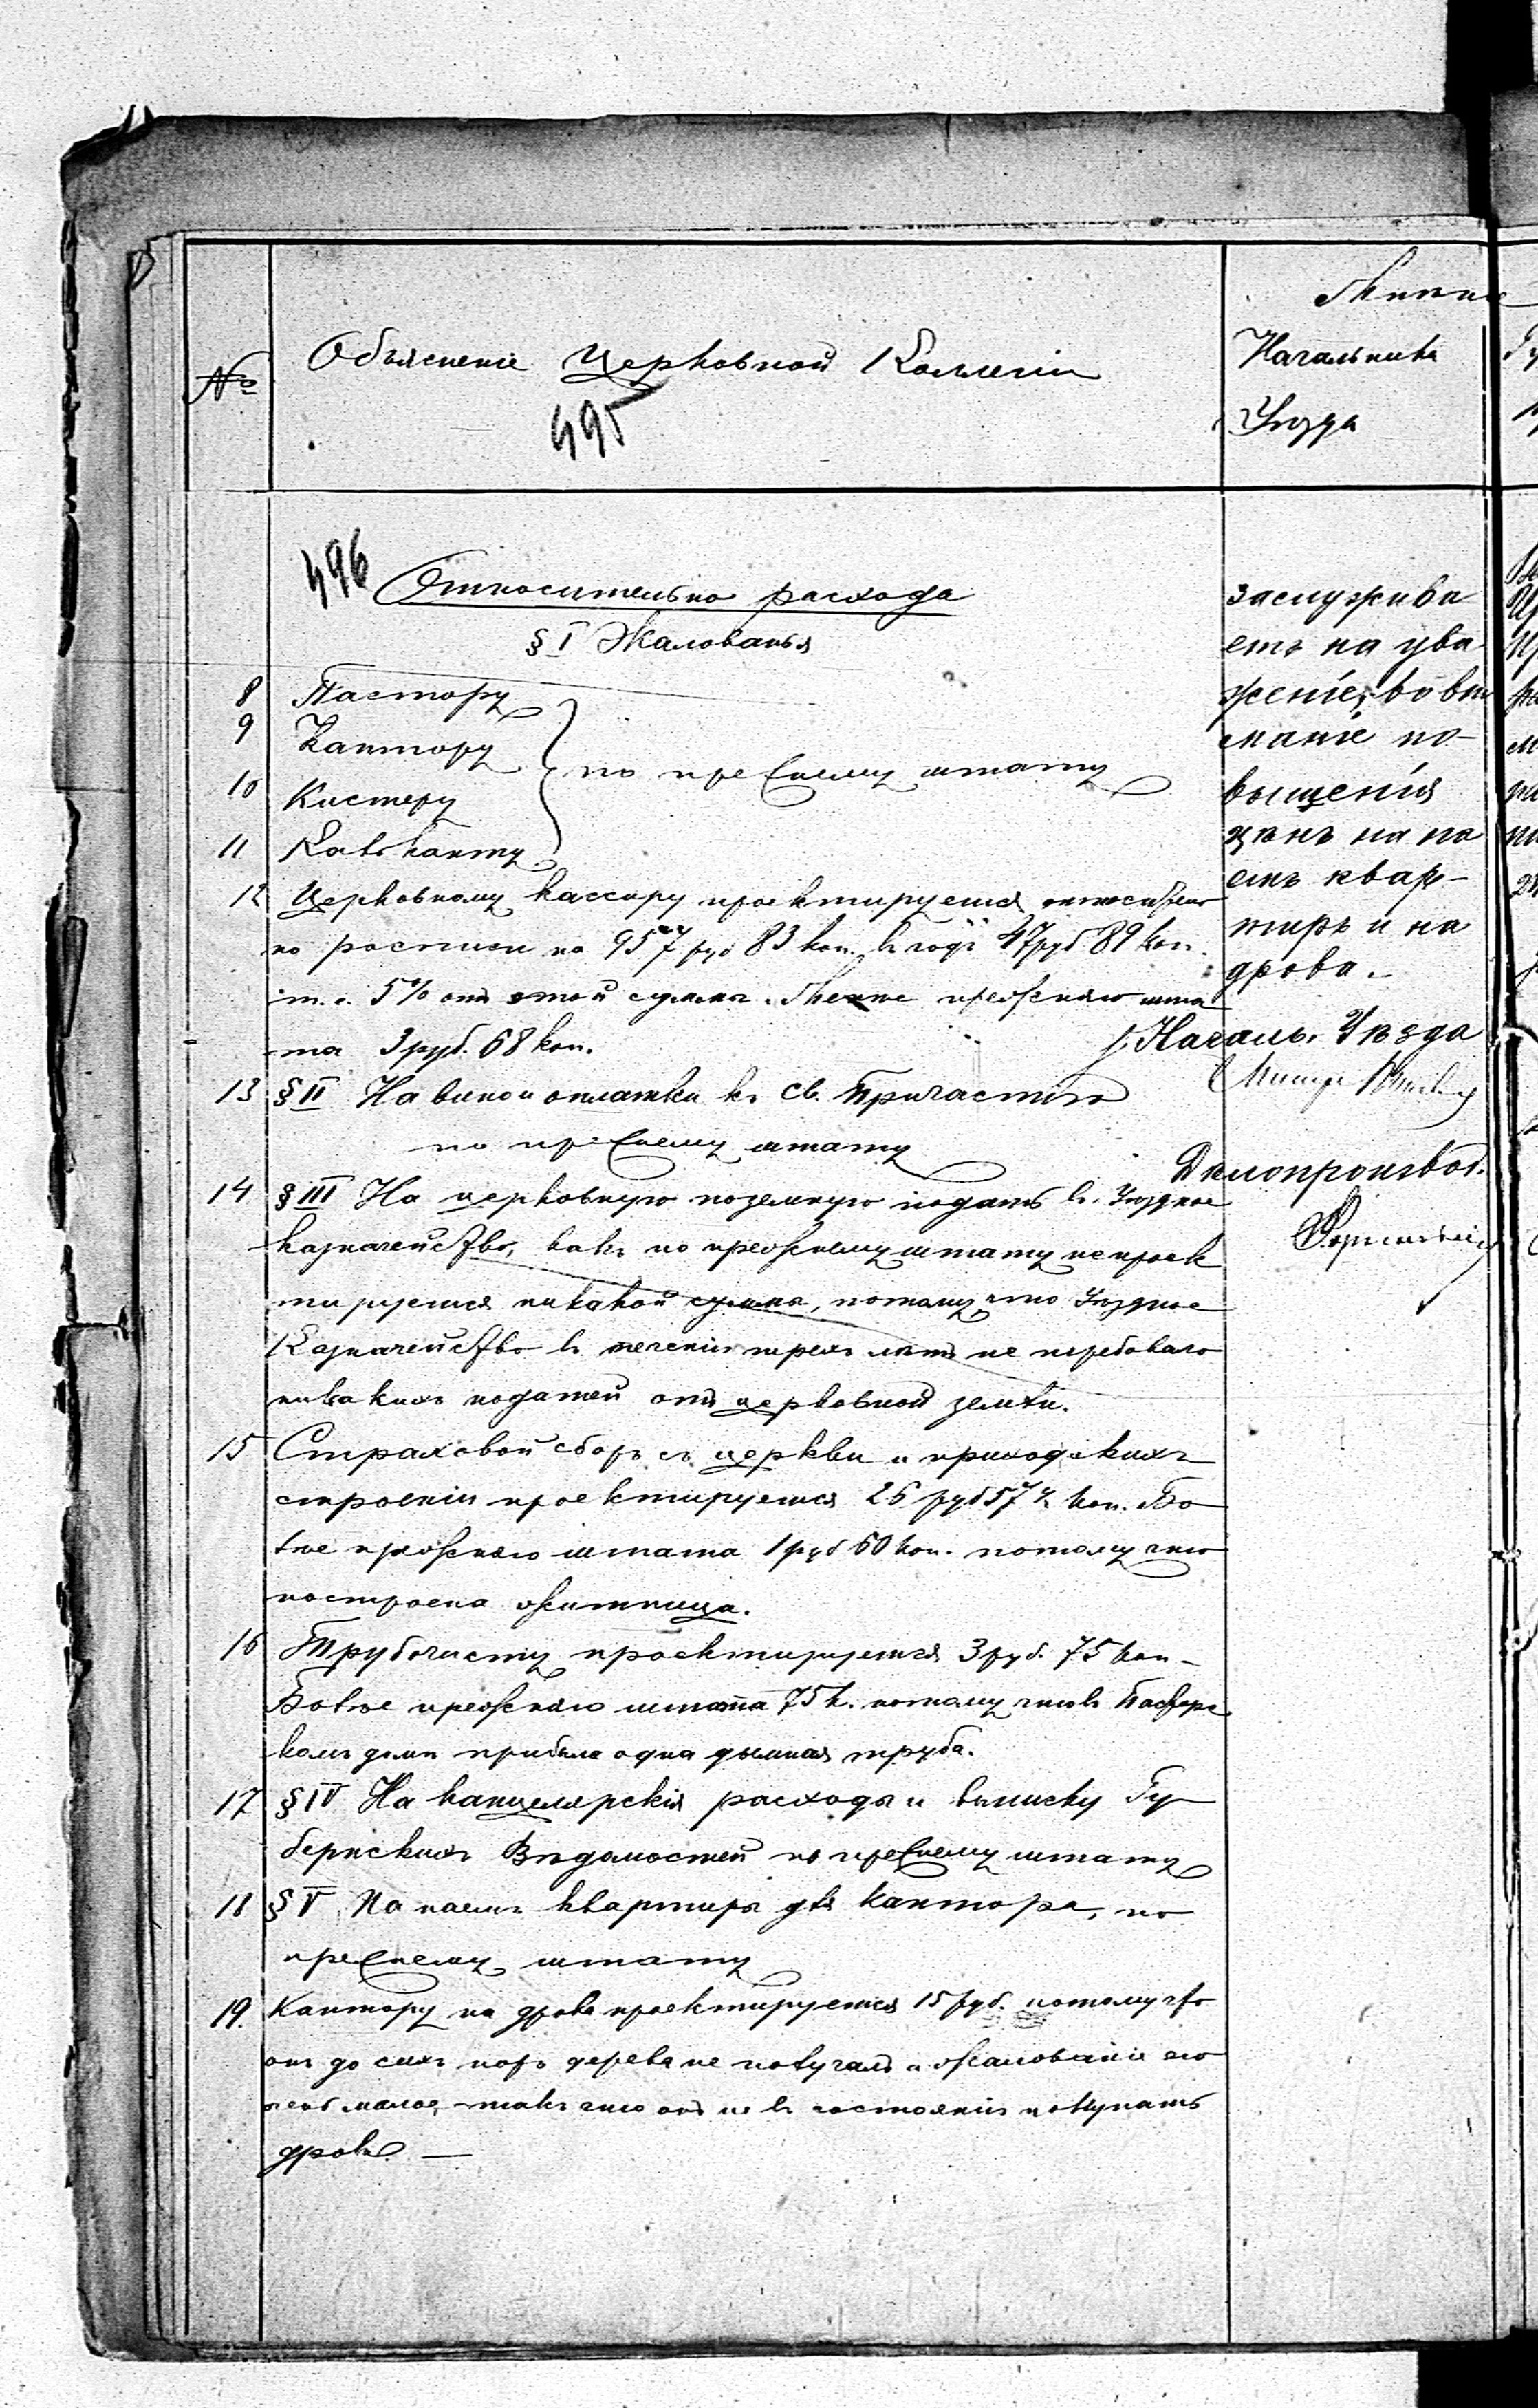 №
Объясненіе Церковной Коллегіи
495
Мнѣніе
Начальника
Уѣзда
496
Относительно расхода
§ I Жалованья
8 Пастору
9 Кантору
по прежнему штату
10 Кистеру
11 Кальканту
12 Церковному кассиру проектируется относительно
по росписи на 957 руб 83 коп. въ годъ 47 руб 89 коп.
т. е. 5% отъ этой суммы. прежняго шта
та 3 руб. 68 коп.
13 § II На вино и оплатки къ Св. Причастію
по прежнему штату
14 § III На церковную поземную подать въ Уѣздное
казначейство, какъ по прежнему штату не проек
тируется никакой суммы, потому что Уѣздное
Казначейство въ теченіи трехъ лѣтъ не требовало
никакихъ податей отъ церковной земли.
15 Страховой сборъ съ церкви и приходскихъ
строеній проектируется 26 руб 57 ½ коп. Бо
лѣе прежняго штата 1 руб 60 коп. потому что
построена житница.
16 Трубочисту проектируется 3 руб. 75 коп -
Болѣе прежняго штата 75 к. потому что въ Пастор
комъ домѣ прибыла одна дымная труба.
17 § IV На канцелярскія расходы и выписку Гу
бернскихъ Вѣдомостей по прежнему штату
18 § V На наемъ квартиры для Кантора, по
прежнему штату
19. Кантору на дрова проектируется 15 руб. потому что
онъ до сихъ поръ дерева не получалъ и жалованіе его
очень малое, такъ что онъ не въ состояніи покупать
дрова. —
заслужива
етъ на ува-
женіе, во вни
маніе по-
вышенія
цѣнъ на на
емъ квар-
тиръ и на
дрова.
Началь. Уѣзда
Дѣлопроизвод.